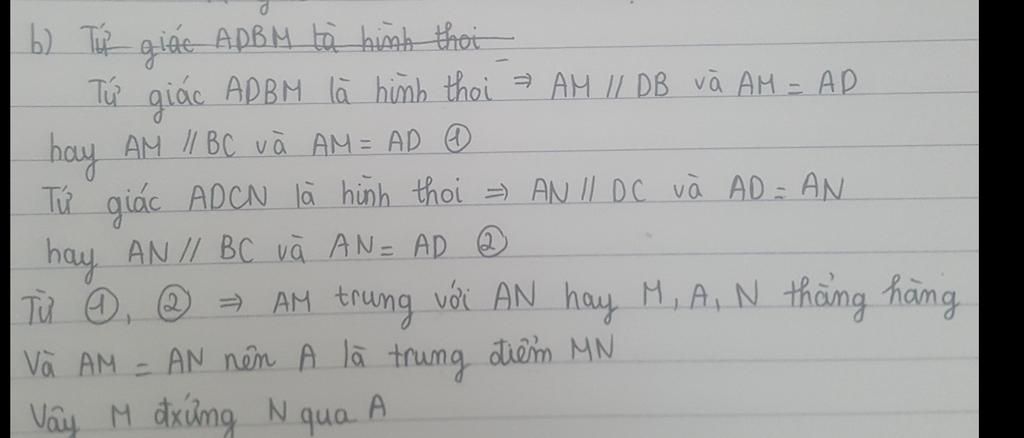 b) Tứ giác ADBM là hình thoi
Tứ giác ADBM là hình thoi ⇒ AM // DB và AM = AD
hay AM // BC và AM = AD ①
Tứ giác ADCN là hình thoi ⇒ AN // DC và AD = AN
hay AN // BC và AN = AD ②
Từ ①, ② ⇒ AM trung với AN hay M, A, N thẳng hàng
Và AM = AN nên A là trung điểm MN
Vậy M đxứng N qua A